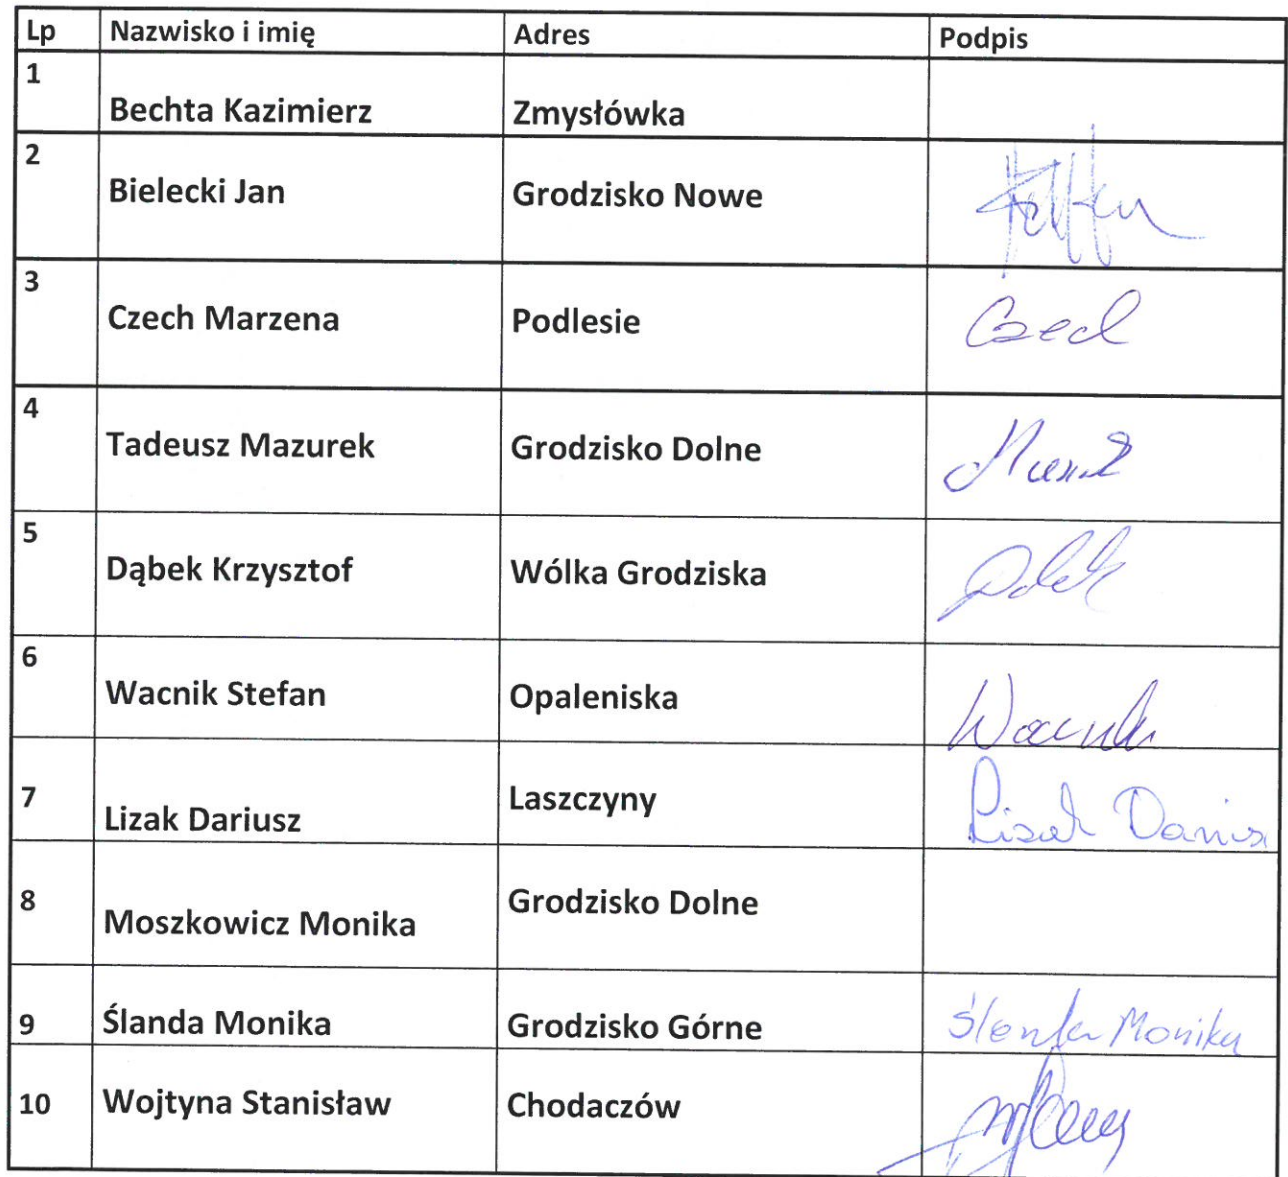 Lp Nazwisko i imię Adres Podpis
1 Bechta Kazimierz Zmysłówka
2 Bielecki Jan Grodzisko Nowe
3 Czech Marzena Podlesie Czech
4 Tadeusz Mazurek Grodzisko Dolne
5 Dąbek Krzysztof Wólka Grodziska
6 Wacnik Stefan Opaleniska Wacnik
7 Lizak Dariusz Laszczyny Lizak Dariusz
8 Moszkowicz Monika Grodzisko Dolne
9 Ślanda Monika Grodzisko Górne Ślanda Monika
10 Wojtyna Stanisław Chodaczów